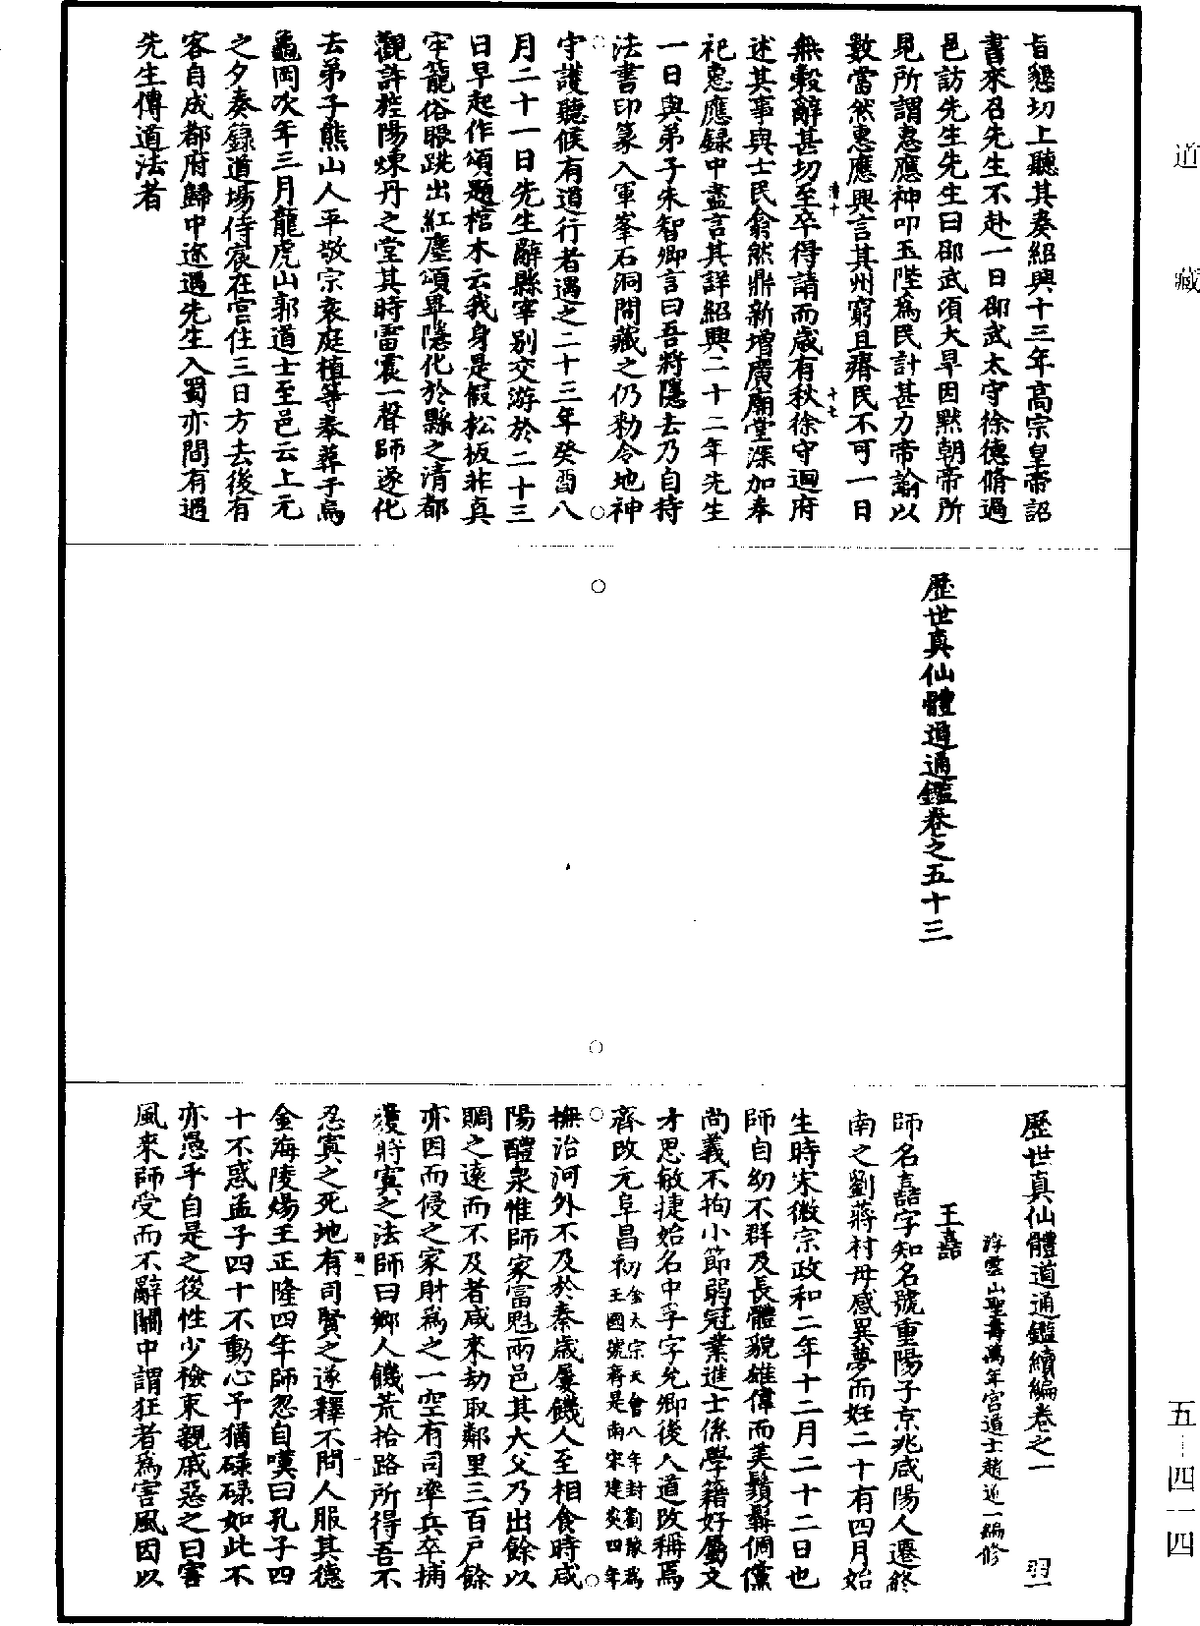 道藏
旨懇切上聽其奏紹興十三年高宗皇帝詔
書來召先生不赴一日邵武太守徐德脩過
邑訪先生先生曰邵武須大旱因黙朝帝所
見所謂惠應神叩玉陛為民計甚力帝諭以
數當然惠應興言其州窮且瘠民不可一日
無穀辭甚切至卒得請而歲有秋徐守迴府
述其事與士民翕然鼎新增廣廟堂深加奉
祀惠應録中盡言其詳紹興二十二年先生
一日與弟子朱智卿言曰吾將隱去乃自持
法書印篆入軍峯石洞間藏之仍勑令地神
守護聽候有道行者遇之二十三年癸酉八
月二十一日先生辭縣宰别交游於二十三
日早起作頌題棺木云我身是假松板非真
牢籠俗眼跳出紅塵頌畢隱化於縣之清都
觀許旌陽煉丹之堂其時雷震一聲師遂化
去弟子熊山人平敬宗袤庭植等奉葬于烏
龜岡次年三月龍虎山郭道士至邑云上元
之夕奏錄道場侍宸在宫住三日方去後有
客自成都府歸中途遇先生入蜀亦間有遇
先生傳道法者
歷世真仙體道通鑑卷之五十三
歷世真仙體道通鑑續編卷之一 羽一
浮雲山聖壽萬年宫道士趙道一編修
王嚞
師名嚞字知名號重陽子京兆咸陽人遷終
南之劉蔣村母感異夢而妊二十有四月始
生時宋徽宗政和二年十二月二十二日也
師自幼不群及長體貌雄偉而美鬚髯倜儻
尚義不拘小節弱冠業進士係學籍好屬文
才思敏捷始名中孚字允卿後入道改稱焉
齊改元阜昌初金太宗天會八年封劉豫為王國號齊是南宋建炎四年
撫治河外不及於秦歲屢饑人至相食時咸
陽醴泉惟師家富魁兩邑其大父乃出餘以
賙之遠而不及者咸來劫取鄰里三百戶餘
亦因而侵之家財為之一空有司率兵卒捕
獲將寘之法師曰鄉人饑荒拾路所得吾不
忍寘之死地有司賢之遂釋不問人服其德
金海陵煬王正隆四年師忽自嘆曰孔子四
十不惑孟子四十不動心予猶碌碌如此不
亦愚乎自是之後性少檢束親戚惡之曰害
風來師受而不辭關中謂狂者為害風因以
五―四一四